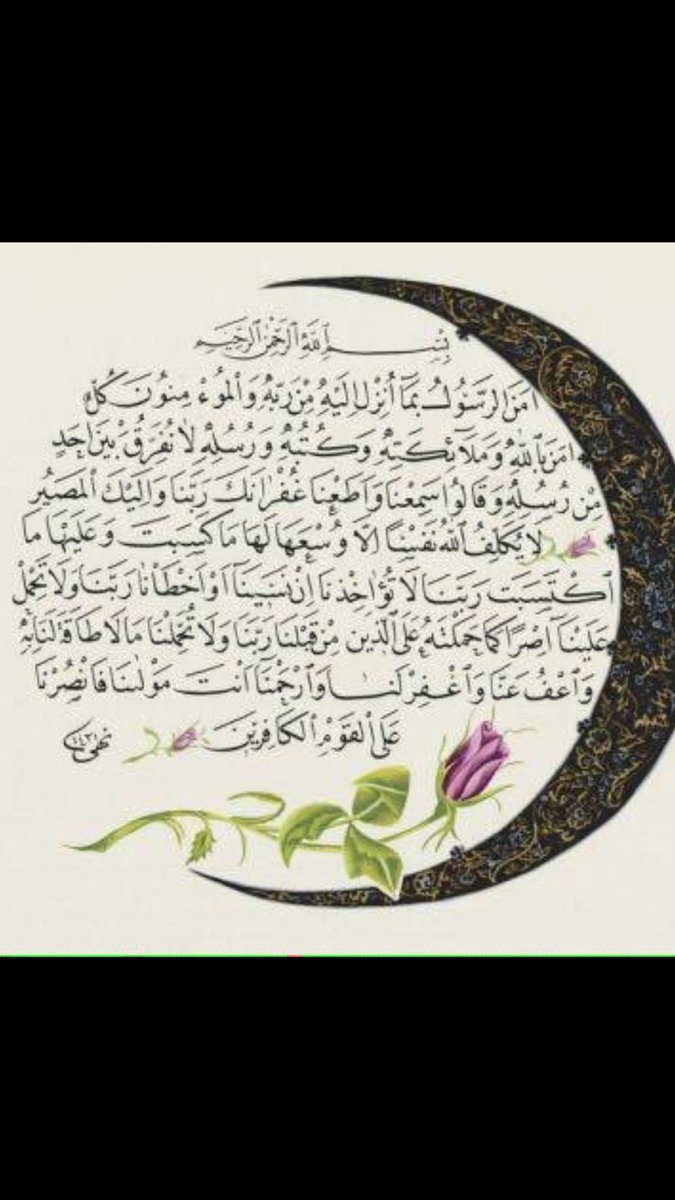 بِسْمِ ٱللَّهِ ٱلرَّحْمٰنِ ٱلرَّحِيمِ
اٰمَنَ ٱلرَّسُولُ بِمَآ أُنْزِلَ إِلَيْهِ مِنْ رَبِّهِ وَٱلْمُوءْمِنُونَ كُلٌّ
اٰمَنَ بِٱللَّهِ وَمَلَآئِكَتِهِ وَكُتُبِهِ وَرُسُلِهِ لَا نُفَرِّقُ بَيْنَ اَحَدٍ
مِنْ رُسُلِهِ وَقَالُوا سَمِعْنَا وَاَطَعْنَا غُفْرَانَكَ رَبَّنَا وَاِلَيْكَ ٱلْمَصِيرُ
لَا يُكَلِّفُ ٱللَّهُ نَفْسًا اِلَّا وُسْعَهَا لَهَا مَا كَسَبَتْ وَعَلَيْهَا مَا
ٱكْتَسَبَتْ رَبَّنَا لَا تُؤَاخِذْنَا اِنْ نَسِينَآ اَوْ اَخْطَاْنَا رَبَّنَا وَلَا تَحْمِلْ
عَلَيْنَآ اِصْرًا كَمَا حَمَلْتَهُ عَلَى ٱلَّذِينَ مِنْ قَبْلِنَا رَبَّنَا وَلَا تُحَمِّلْنَا مَا لَا طَاقَةَ لَنَا بِهِ
وَٱعْفُ عَنَّا وَٱغْفِرْ لَنَا وَٱرْحَمْنَآ اَنْتَ مَوْلٰىنَا فَانْصُرْنَا
عَلَى ٱلْقَوْمِ ٱلْكَافِرِينَ